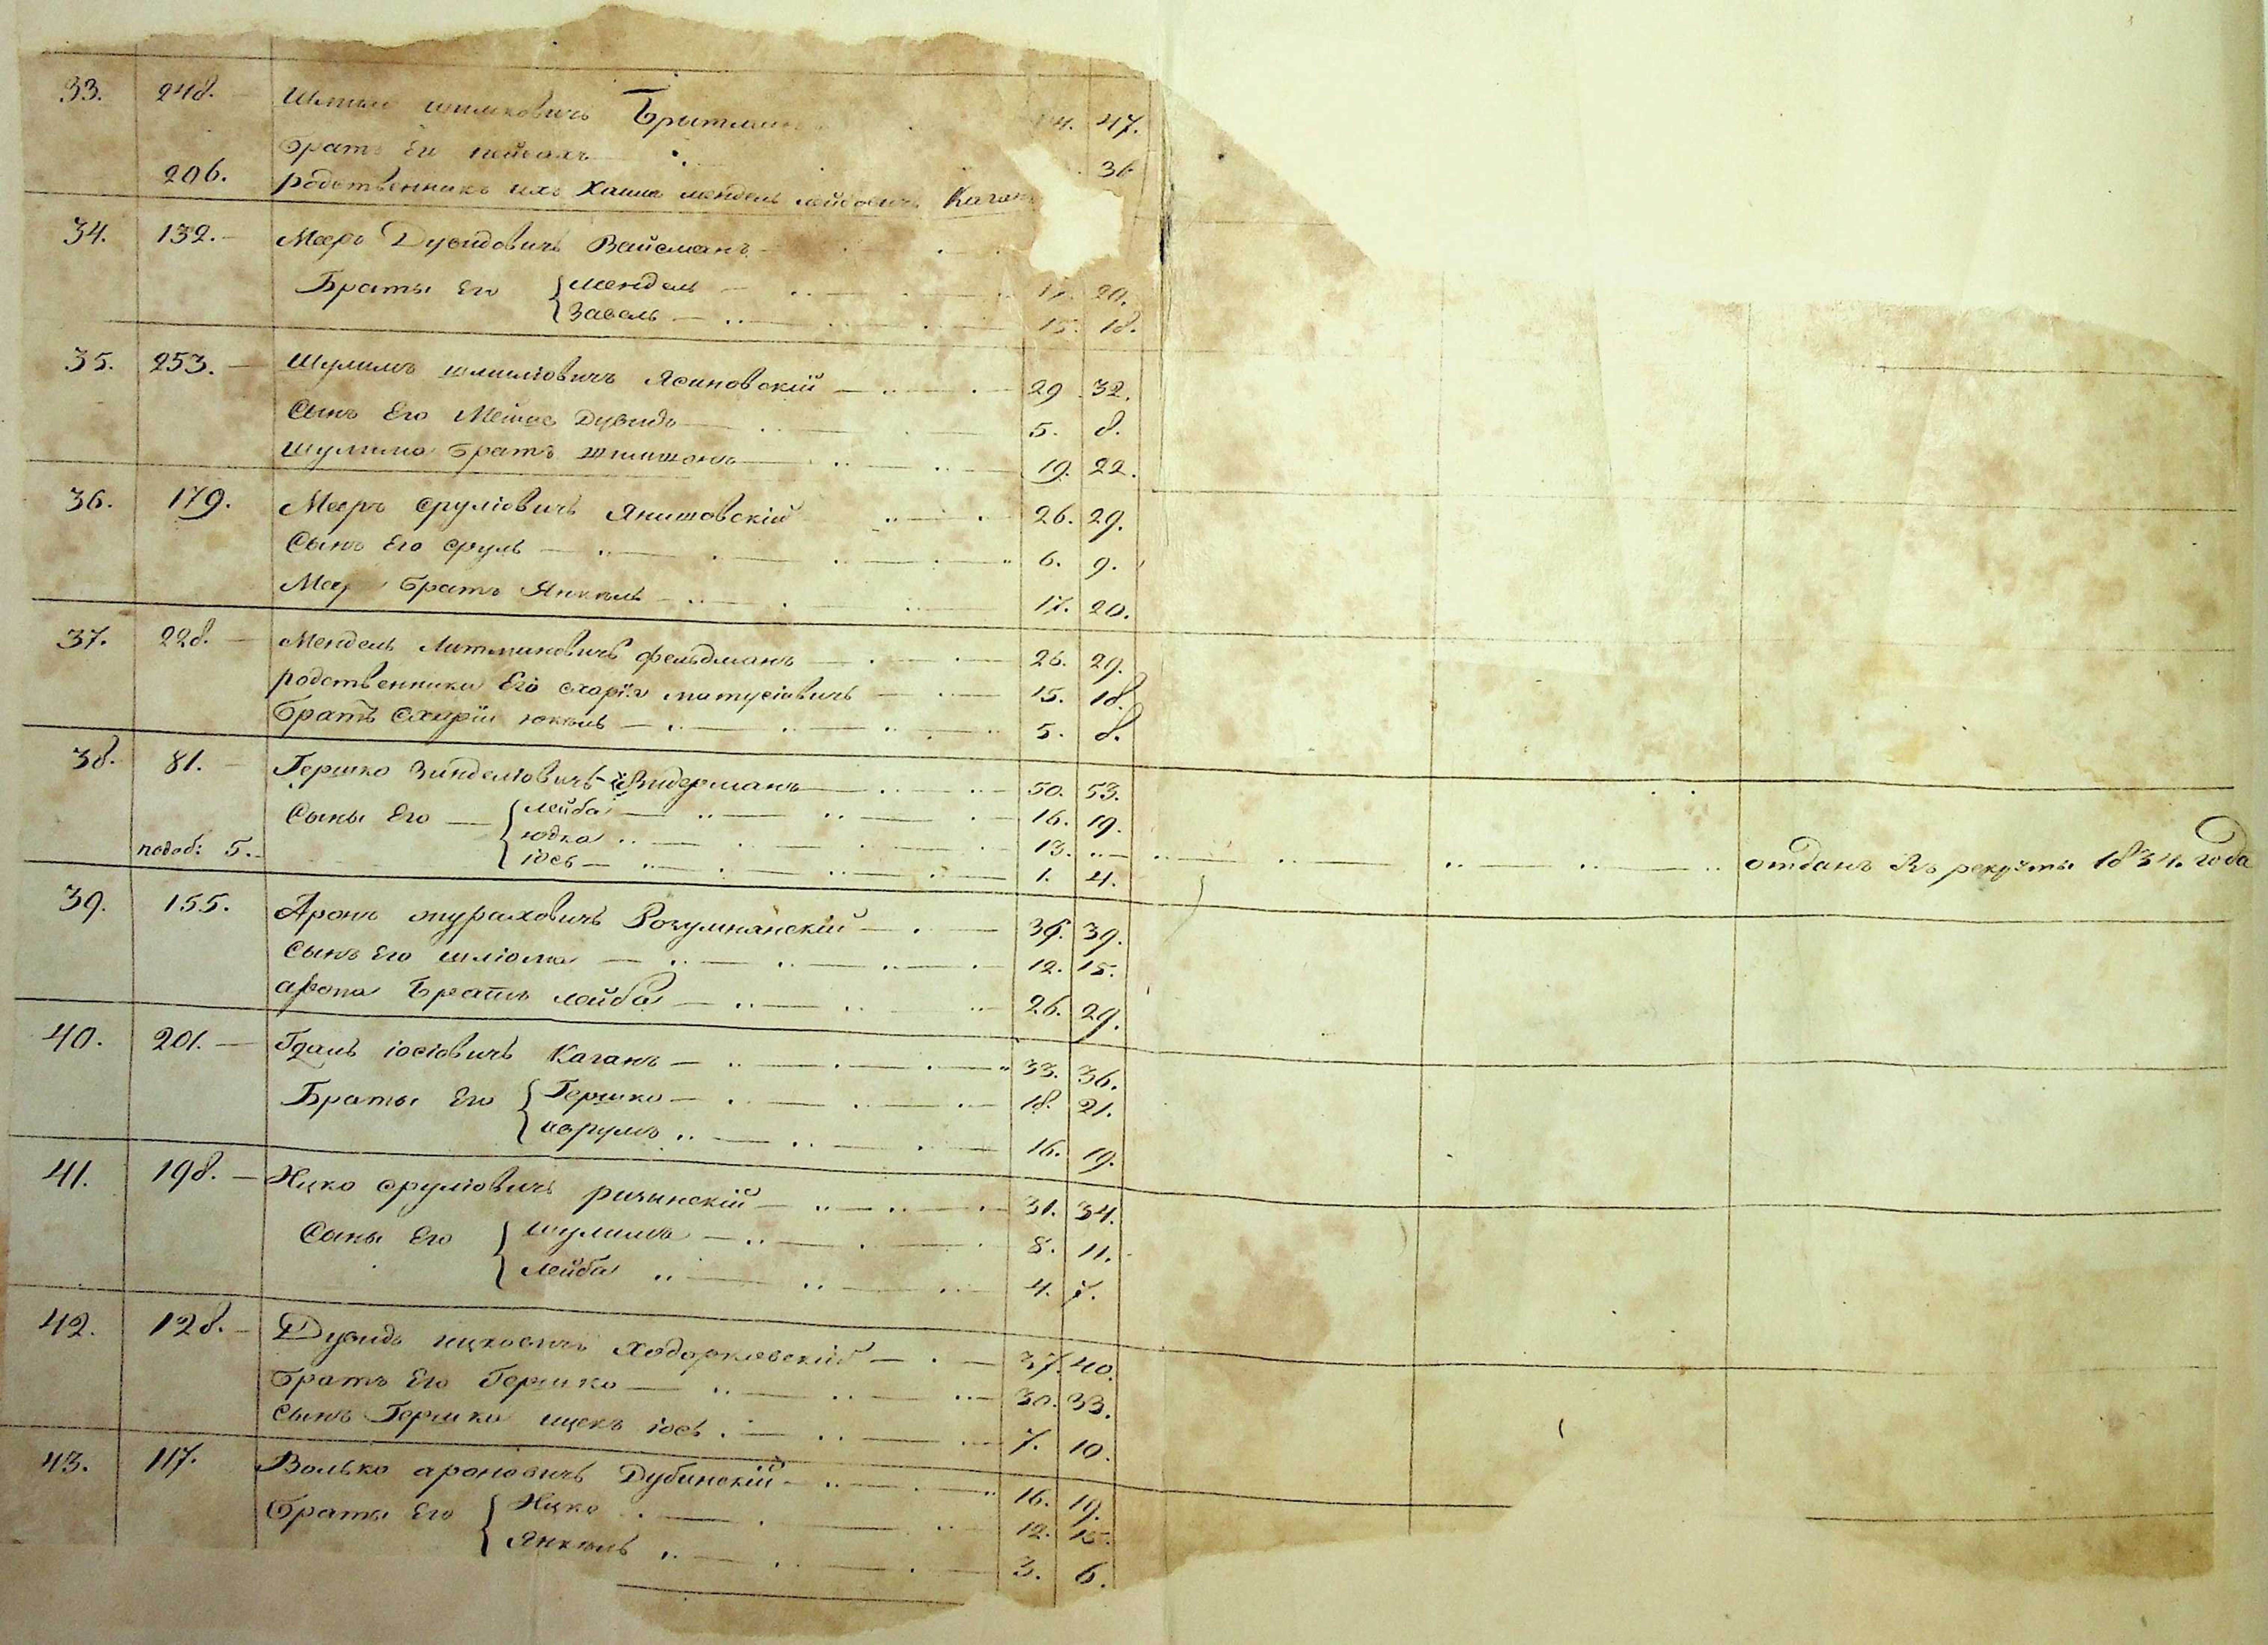 33. 248. — шмиковичъ Брытман 44. 47.
Братъ Его пейсахъ 36
206. родственникъ ихъ Хаимъ мендель лейбовичъ Каганъ
34. 132. — Мееръ Дувидовичъ Вайсманъ
Браты Его { мендель — 17. 20.
Завель — 15. 18.
35. 253. — Шулимъ шлиміовичъ Ясиновскій — 29. 32.
Сынъ Его Дувидъ — 5. 8.
Шулима Братъ — 19. 22.
36. 179. Мееръ сруліовичъ Янишовскій 26. 29.
Сынъ Его сруль — 6. 9.
Меера Братъ Янкель — 17. 20.
37. 228. — Мендель Литмановичъ фельдманъ — 26. 29.
родственники Его матусіовичъ — 15. 18.
Братъ юкель — 5. 8.
38. 81. — Гершко Зинделіовичъ Видерманъ — 50. 53.
Сыны Его — { лейба — 16. 19.
юдка — 13. — отданъ въ рекруты 1834. года
подоб: 5. іось — 1. 4.
39. 155. Аронъ Розумнянскій — 36. 39.
Сынъ Его шліома — 12. 15.
арона Братъ лейба — 26. 29.
40. 201. — Гдаль іосіовичъ Каганъ — 33. 36.
Браты Его { Гершко — 18. 21.
аврумъ — 16. 19.
41. 198. — Ицко сруліовичъ ричинскій — 31. 34.
Сыны Его { шулимъ — 8. 11.
лейба — 4. 7.
42. 128. — Дувидъ ицковичъ Ходорковскій — 37. 40.
Братъ Его Гершко — 30. 33.
Сынъ Гершка ицекъ іось — 7. 10.
43. 117. Волько ароновичъ Дубинскій — 16. 19.
Браты Его { Ицко — 12. 15.
Янкель — 3. 6.